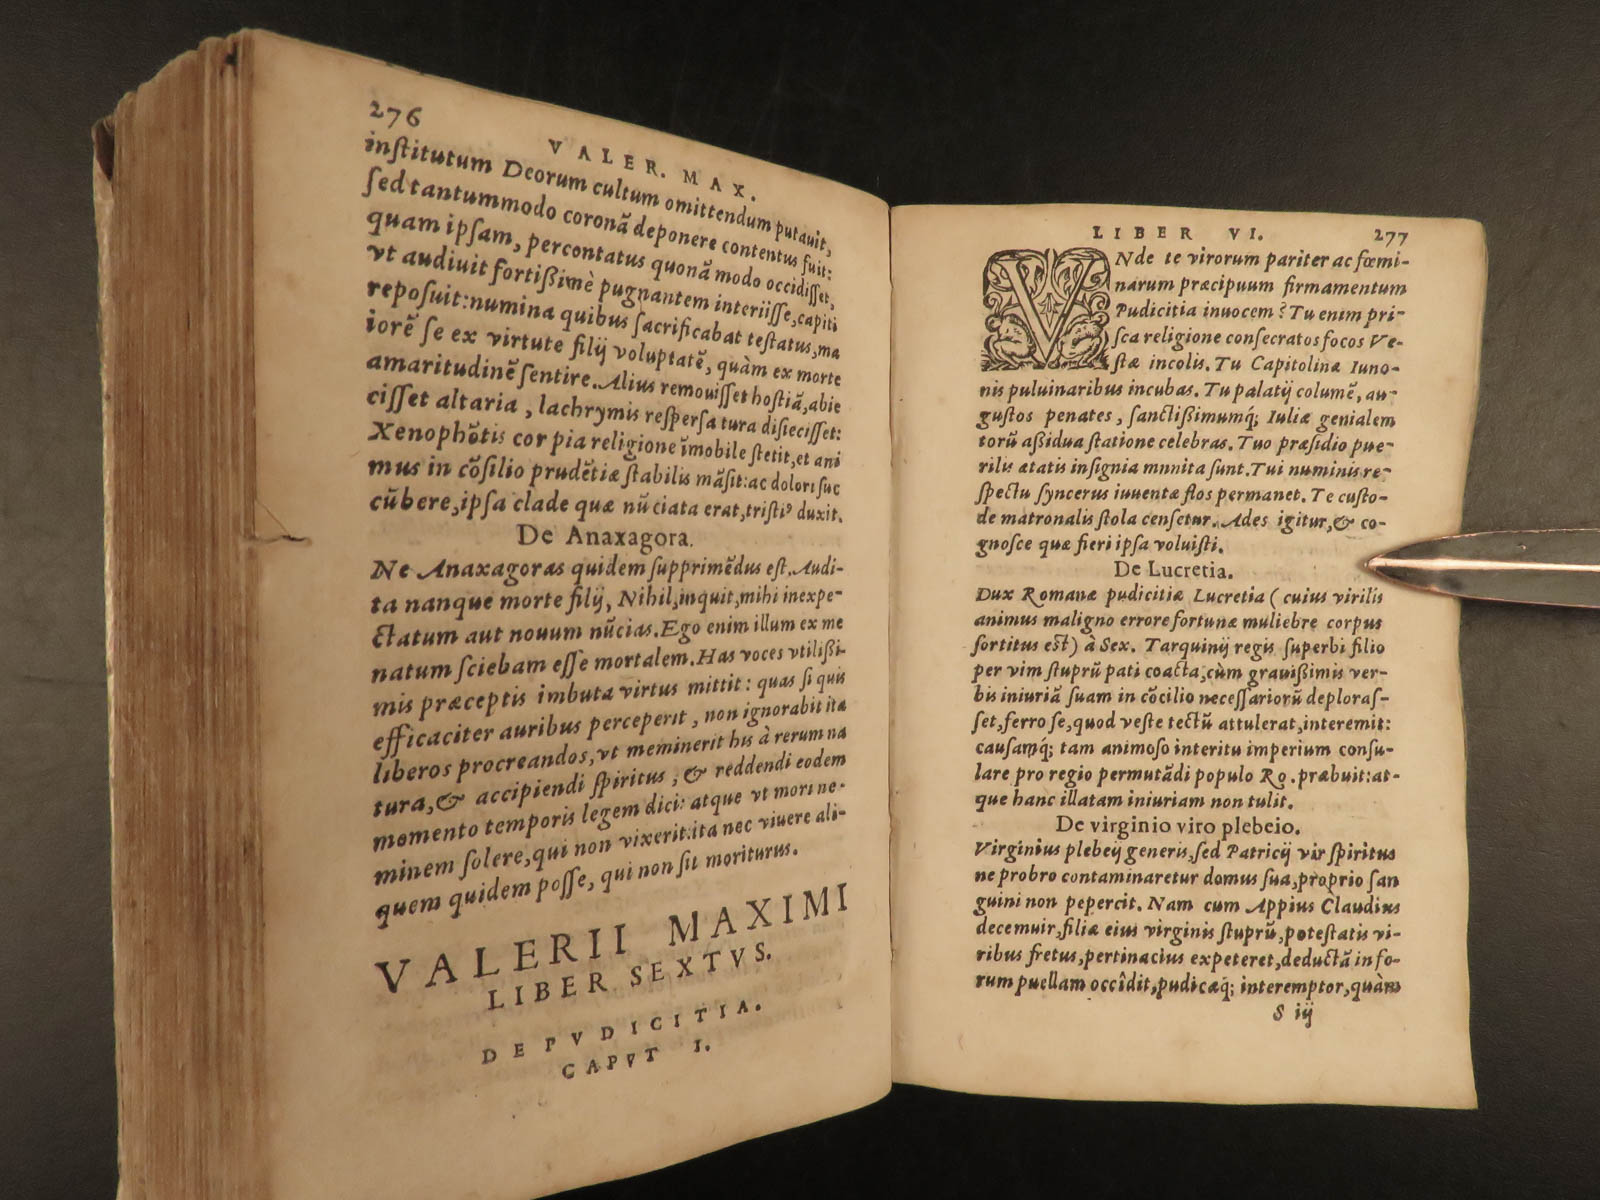 276
VALER. MAX.
institutum Deorum cultum omittendum putauit,
sed tantummodo coronā deponere contentus fuit:
quam ipsam, percontatus quonā modo occidisset,
vt audiuit fortißimè pugnantem interiisse, capiti
reposuit: numina quibus sacrificabat testatus, ma
iorē se ex virtute filij voluptatē, quàm ex morte
amaritudinē sentire. Alius remouisset hostiā, abie
cisset altaria, lachrymis respersa tura disiecisset:
Xenophōtis cor pia religione īmobile stetit, et ani
mus in cōsilio prudētiæ stabilis māsit: ac dolori suc
cūbere, ipsa clade quæ nūciata erat, tristi⁹ duxit.
De Anaxagora.
Ne Anaxagoras quidem supprimēdus est. Audi-
ta nanque morte filij, Nihil, inquit, mihi inexpe-
ctatum aut nouum nūcias. Ego enim illum ex me
natum sciebam esse mortalem. Has voces vtilißi-
mis præceptis imbuta virtus mittit: quas si quis
efficaciter auribus perceperit, non ignorabit ita
liberos procreandos, vt meminerit his à rerum na
tura, & accipiendi spiritus, & reddendi eodem
momento temporis legem dici: atque vt mori ne-
minem solere, qui non vixerit: ita nec viuere ali-
quem quidem posse, qui non sit moriturus.
VALERII MAXIMI
LIBER SEXTVS.
DE PVDICITIA.
CAPVT I.
LIBER VI. 277
VNde te virorum pariter ac fœmi-
narum præcipuum firmamentum
Pudicitia inuocem? Tu enim pri-
sca religione consecratos focos Ve-
stæ incolis. Tu Capitolinæ Iuno-
nis puluinaribus incubas. Tu palatij columē, au-
gustos penates, sanctißimumq; Iuliæ genialem
torū aßidua statione celebras. Tuo præsidio pue-
rilis ætatis insignia munita sunt. Tui numinis re-
spectu syncerus iuuentæ flos permanet. Te custo-
de matronalis stola censetur. Ades igitur, & co-
gnosce quæ fieri ipsa voluisti.
De Lucretia.
Dux Romanæ pudicitiæ Lucretia (cuius virilis
animus maligno errore fortunæ muliebre corpus
sortitus est) à Sex. Tarquinij regis superbi filio
per vim stuprū pati coacta, cùm grauißimis ver-
bis iniuriā suam in cōcilio necessariorū deploras-
set, ferro se, quod veste tectū attulerat, interemit:
causamq; tam animoso interitu imperium consu-
lare pro regio permutādi populo Ro. præbuit: at-
que hanc illatam iniuriam non tulit.
De virginio viro plebeio.
Virginius plebeij generis, sed Patricij vir spiritus
ne probro contaminaretur domus sua, proprio san
guini non pepercit. Nam cum Appius Claudius
decemuir, filiæ eius virginis stuprū, potestatis vi-
ribus fretus, pertinacius expeteret, deductā in fo-
rum puellam occîdit, pudicæq; interemptor, quàm
S iij